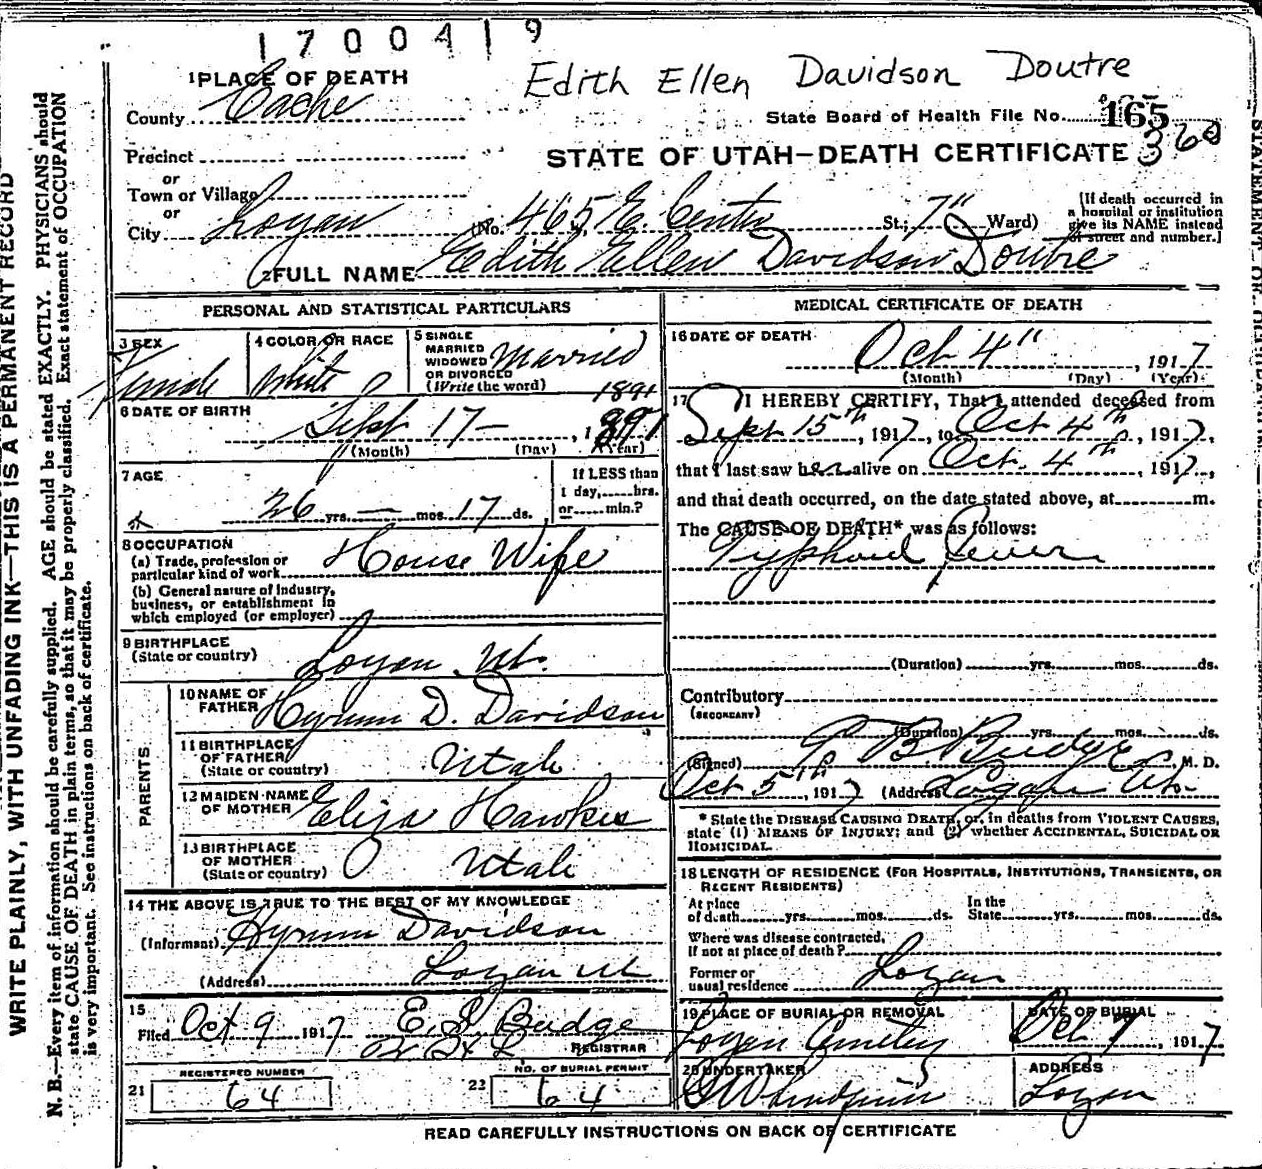 1700419
Edith Ellen Davidson Doutre
1 PLACE OF DEATH
County Cache
State Board of Health File No. 165
360
Precinct
STATE OF UTAH—DEATH CERTIFICATE
or
Town or Village
or
City Logan (No. 465 E. Center St.; 7" Ward)
[If death occurred in a hospital or institution give its NAME instead of street and number.]
2 FULL NAME Edith Ellen Davidson Doutre
PERSONAL AND STATISTICAL PARTICULARS
3 SEX Female
4 COLOR OR RACE White
5 SINGLE MARRIED WIDOWED OR DIVORCED (Write the word) Married
1891
6 DATE OF BIRTH Sept 17 — , 1891
(Month) (Day) (Year)
7 AGE 26 yrs. — mos. 17 ds.
If LESS than 1 day, hrs. or min.?
8 OCCUPATION House Wife
(a) Trade, profession or particular kind of work
(b) General nature of industry, business, or establishment in which employed (or employer)
9 BIRTHPLACE (State or country) Logan Ut.
PARENTS
10 NAME OF FATHER Hyrum D. Davidson
11 BIRTHPLACE OF FATHER (State or country) Utah
12 MAIDEN NAME OF MOTHER Eliza Hawkes
13 BIRTHPLACE OF MOTHER (State or country) Utah
14 THE ABOVE IS TRUE TO THE BEST OF MY KNOWLEDGE
(Informant) Hyrum Davidson
(Address) Logan Ut
15
Filed Oct 9 1917 Budge
REGISTRAR
REGISTERED NUMBER
21 64
NO. OF BURIAL PERMIT
22 64
MEDICAL CERTIFICATE OF DEATH
16 DATE OF DEATH Oct 4" , 1917
(Month) (Day) (Year)
17 I HEREBY CERTIFY, That I attended deceased from
Sept 15th, 1917, to Oct 4th, 1917,
that I last saw her alive on Oct. 4th, 1917,
and that death occurred, on the date stated above, at m.
The CAUSE OF DEATH* was as follows:
Typhoid fever
(Duration) yrs. mos. ds.
Contributory
(SECONDARY)
(Duration) yrs. mos. ds.
(Signed) Budge M. D.
Oct 5th, 1917 (Address) Logan Ut.
* State the DISEASE CAUSING DEATH, or, in deaths from VIOLENT CAUSES,
state (1) MEANS OF INJURY; and (2) whether ACCIDENTAL, SUICIDAL OR
HOMICIDAL.
18 LENGTH OF RESIDENCE (FOR HOSPITALS, INSTITUTIONS, TRANSIENTS, OR
RECENT RESIDENTS)
At place of death yrs. mos. ds. In the State yrs. mos. ds.
Where was disease contracted,
if not at place of death?
Former or usual residence Logan
19 PLACE OF BURIAL OR REMOVAL Logan Cemetery
DATE OF BURIAL Oct 7, 1917
20 UNDERTAKER
ADDRESS Logan
READ CAREFULLY INSTRUCTIONS ON BACK OF CERTIFICATE
WRITE PLAINLY, WITH UNFADING INK—THIS IS A PERMANENT RECORD
N. B.—Every item of information should be carefully supplied. AGE should be stated EXACTLY. PHYSICIANS should
state CAUSE OF DEATH in plain terms, so that it may be properly classified. Exact statement of OCCUPATION
is very important. See instructions on back of certificate.